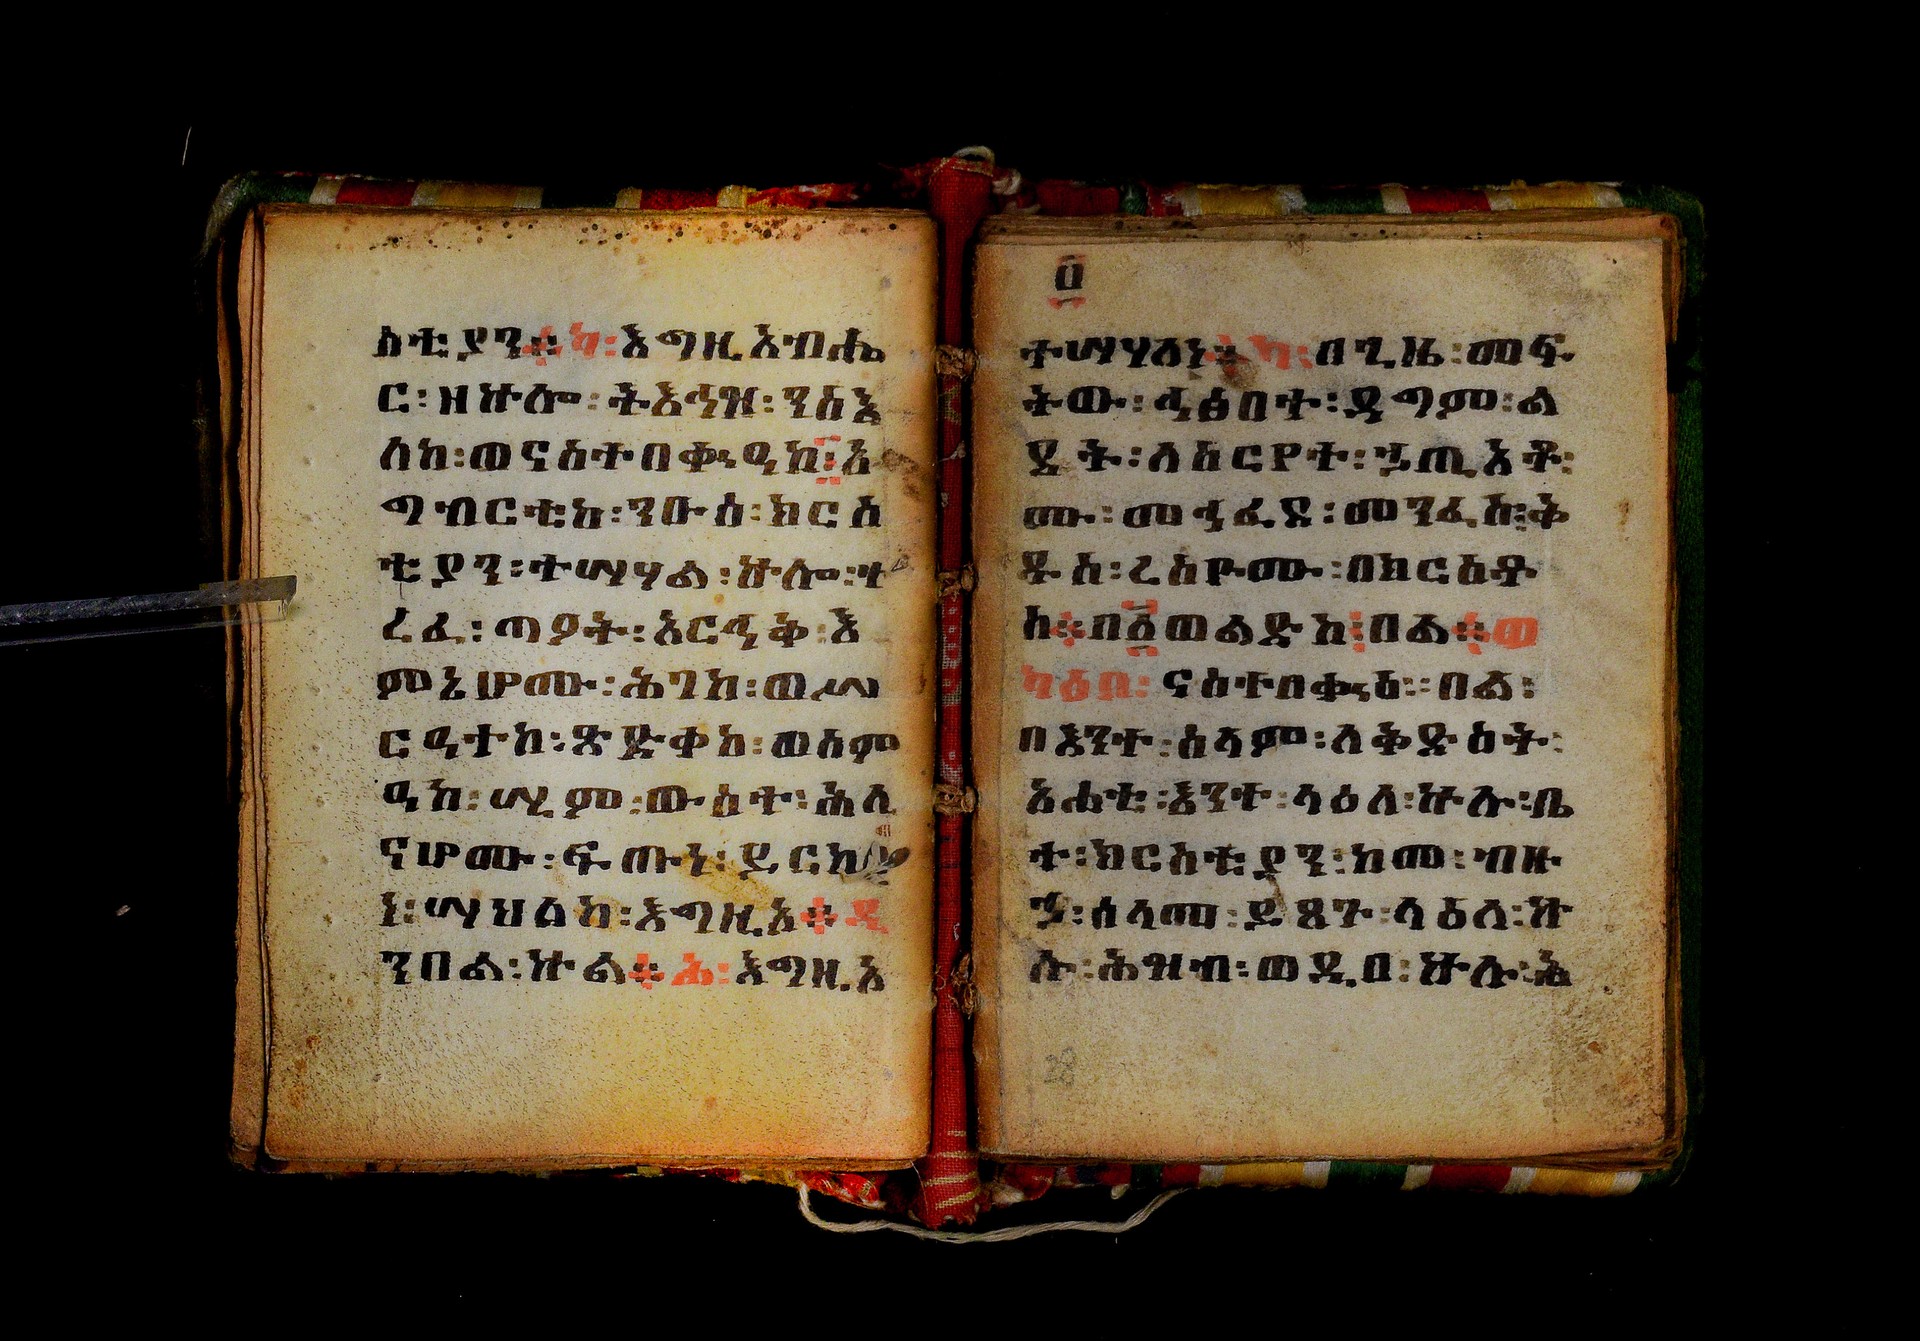 ስቲያን፨ካ፡እግዚአብሔ
ር፡ዘኵሎ፡ትእኅዝ፡ንስእ
ለከ፡ወናስተበቍዓከ፡እ
ግብርቲከ፡ንዑስ፡ክርስ
ቲያን፡ተሣሃል፡ኵሎ፡ኀ
ረፈ፡ጣዖት፡አርኁቅ፡እ
ምኔሆሙ፡ሕገከ፡ወሥ
ርዓተከ፡ጽድቀከ፡ወስም
ዓከ፡ሢም፡ውስተ፡ሕሊ
ናሆሙ፡ፍጡነ፡ይርከ
ነ፡ሣህልከ፡እግዚአ፨ዲ
ንበል፡ኵል፨ሕ፡እግዚአ
፬
ተሣሃለነ፨ካ፡በጊዜ፡መፍ
ትው፡ኂፅበተ፡ዳግም፡ል
ደት፡ለስርየተ፡ኃጢአቶ፡
ሙ፡መኃፈደ፡መንፈስ፡ቅ
ዱስ፡ረስዮሙ፡በክርስቶ
ስ፨በ፩ወልድከ፡በል፨ወ
ካዕበ፡ናስተበቍዕ፡፡በል፡
በእንተ፡ሰላም፡ለቅድስት፡
አሐቲ፡እንተ፡ላዕለ፡ኵሉ፡ቤ
ተ፡ክርስቲያን፡ከመ፡ብዙ
ኃ፡ሰላመ፡ይጸጉ፡ላዕለ፡ኵ
ሉ፡ሕዝብ፡ወዲበ፡ኵሉ፡አ
28